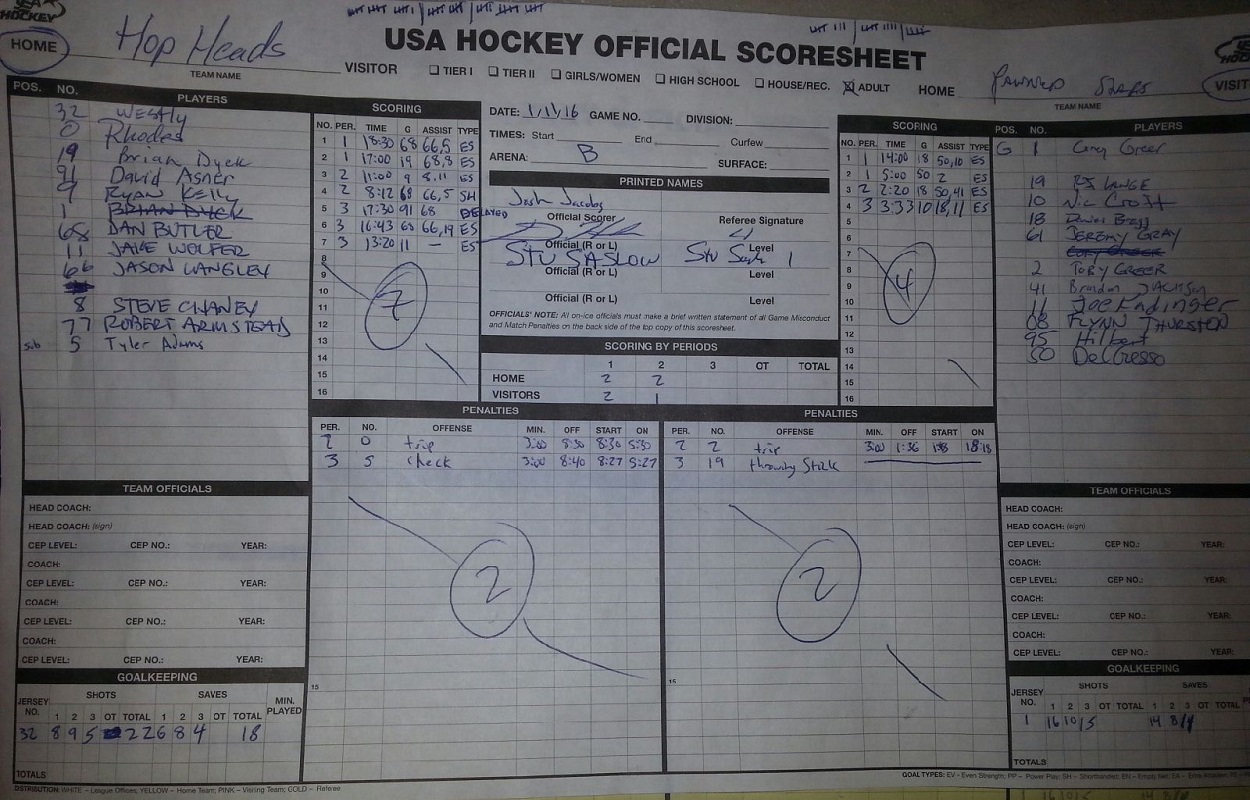 HOCKEY
HOME Hop Heads
TEAM NAME
USA HOCKEY OFFICIAL SCORESHEET
VISITOR ☐ TIER I ☐ TIER II ☐ GIRLS/WOMEN ☐ HIGH SCHOOL ☐ HOUSE/REC. ☒ ADULT HOME
TEAM NAME
VISIT
POS. NO. PLAYERS
32 Westly
0 Rhodes
19 Brian Dyck
91 David Asner
9 Ryan Kelly
1 BRIAN DYCK
68 DAN BUTLER
11 JAKE WOLFER
66 JASON LANGLEY
8 STEVE CHANEY
77 ROBERT ARMSTEAD
sub 5 Tyler Adams
SCORING
NO. PER. TIME G ASSIST TYPE
1 1 18:30 68 66,5 ES
2 1 17:00 19 68,8 ES
3 2 11:00 9 8,11 ES
4 2 8:12 68 66,5 SH
5 3 17:30 91 68 DELAYED
6 3 16:43 68 66,19 ES
7 3 13:20 11 — ES
8
9
10
11
12
13
14
15
16
7
DATE: 1/11/16 GAME NO. DIVISION:
TIMES: Start End Curfew
ARENA: B SURFACE:
PRINTED NAMES
Josh Jacobs
Official Scorer Referee Signature
Official (R or L) Level
STU SASLOW 1
Official (R or L) Level
Official (R or L) Level
OFFICIALS' NOTE: All on-ice officials must make a brief written statement of all Game Misconduct
and Match Penalties on the back side of the top copy of this scoresheet.
SCORING BY PERIODS
1 2 3 OT TOTAL
HOME 2 2
VISITORS 2 1
SCORING
NO. PER. TIME G ASSIST TYPE
1 1 14:00 18 50,10 ES
2 1 5:00 50 2 ES
3 2 2:20 18 50,41 ES
4 3 3:33 10 18,11 ES
5
6
7
8
9
10
11
12
13
14
15
16
4
POS. NO. PLAYERS
G 1 Corey Greer
19
10 Nic Croft
18
61 JEREMY GRAY
2 TOBY GREER
41 Brandon JACKSON
11 Joe Radinger
08 FLYNN THURSTON
95 Hilbert
50 DelGresso
PENALTIES
PER. NO. OFFENSE MIN. OFF START ON
2 0 trip 3:00 8:30 8:30 5:30
3 5 check 3:00 8:40 8:27 5:27
15
2
PENALTIES
PER. NO. OFFENSE MIN. OFF START ON
2 2 trip 3:00 1:36 18:18
3 19 throwing Stick
15
2
TEAM OFFICIALS
HEAD COACH:
HEAD COACH: (sign)
CEP LEVEL: CEP NO.: YEAR:
COACH:
CEP LEVEL: CEP NO.: YEAR:
COACH:
CEP LEVEL: CEP NO.: YEAR:
COACH:
CEP LEVEL: CEP NO.: YEAR:
TEAM OFFICIALS
HEAD COACH:
HEAD COACH: (sign)
CEP LEVEL: CEP NO.: YEAR:
COACH:
CEP LEVEL: CEP NO.: YEAR:
COACH:
CEP LEVEL: CEP NO.: YEAR:
COACH:
CEP LEVEL: CEP NO.: YEAR:
GOALKEEPING
JERSEY NO. SHOTS SAVES MIN. PLAYED
1 2 3 OT TOTAL 1 2 3 OT TOTAL
32 8 9 5 22 6 8 4 18
TOTALS
GOALKEEPING
JERSEY NO. SHOTS SAVES
1 2 3 OT TOTAL 1 2 3 OT TOTAL
1 16 10 5 14 8
TOTALS
DISTRIBUTION: WHITE – League Offices; YELLOW – Home Team; PINK – Visiting Team; GOLD – Referee
GOAL TYPES: EV - Even Strength; PP – Power Play; SH – Shorthanded; EN – Empty Net;